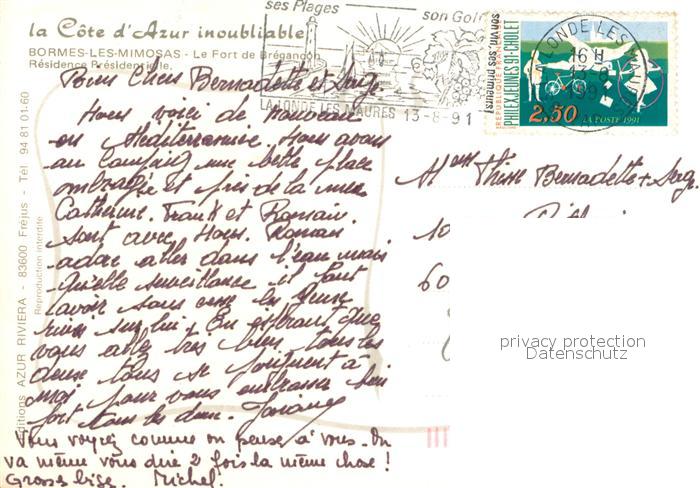 la Côte d'Azur inoubliable
BORMES-LES-MIMOSAS - Le Fort de Brégançon
Résidence Présidentielle.
Éditions AZUR RIVIERA - 83600 Fréjus - Tél 94 81 01-60
Reproduction interdite
ses Plages son Golf
son vin, ses primeurs!
LA LONDE LES MAURES 13-8-91
LA LONDE LES MAURES
16 H
13-8
1991
RÉPUBLIQUE FRANÇAISE
PHILEXJEUNES 91-CHOLET
2,50
LA POSTE 1991
Bien Chers Bernadette et Serge.
Nous voici de nouveau
en Méditerranée. Nous avons
au camping une belle place
ombragée et près de la mer
Catherine. Franck et Romain.
sont avec Nous. Romain
adore aller dans l'eau mais
quelle surveillance il faut
avoir sans cesse les yeux
rivés sur lui. En espérant que
vous allez très bien tous les
deux tous se joignent à
moi pour vous embrasser bien
fort tous les deux.
Vous voyez comme on pense à vous. On
va même vous dire 2 fois la même chose!
Grosses bises. Michel.
Bernadette + Serge
10
60
privacy protection
Datenschutz